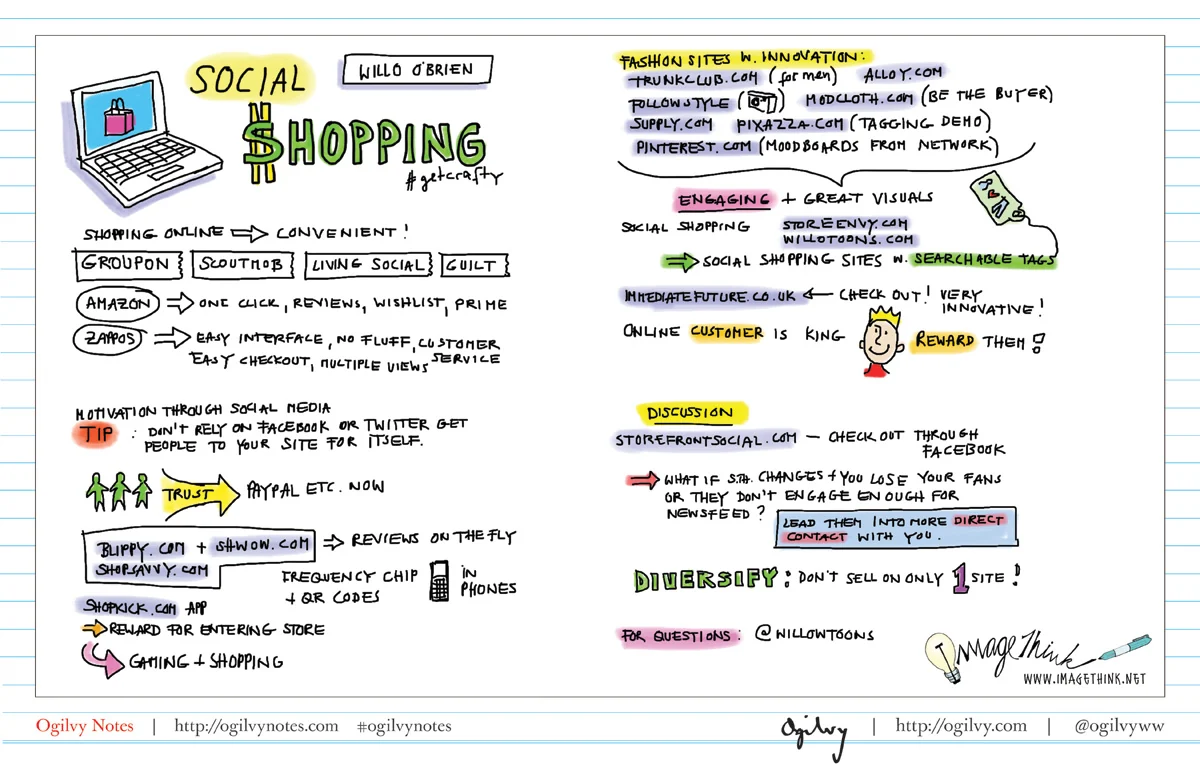 SOCIAL
$HOPPING
#getcrafty
WILLO O'BRIEN
SHOPPING ONLINE ⇒ CONVENIENT!
GROUPON
SCOUTMOB
LIVING SOCIAL
GUILT
AMAZON ⇒ ONE CLICK, REVIEWS, WISHLIST, PRIME
ZAPPOS ⇒ EASY INTERFACE, NO FLUFF, CUSTOMER SERVICE
EASY CHECKOUT, MULTIPLE VIEWS
MOTIVATION THROUGH SOCIAL MEDIA
TIP : DON'T RELY ON FACEBOOK OR TWITTER GET
PEOPLE TO YOUR SITE FOR ITSELF.
TRUST PAYPAL ETC. NOW
BLIPPY.COM + SHWOW.COM ⇒ REVIEWS ON THE FLY
SHOPSAVVY.COM
FREQUENCY CHIP
+ QR CODES
IN
PHONES
SHOPKICK.COM APP
⇒ REWARD FOR ENTERING STORE
GAMING + SHOPPING
FASHION SITES W. INNOVATION:
TRUNKCLUB.COM (for men) ALLOY.COM
FOLLOWSTYLE ( ) MODCLOTH.COM (BE THE BUYER)
SUPPLY.COM PIXAZZA.COM (TAGGING DEMO)
PINTEREST.COM (MOODBOARDS FROM NETWORK)
ENGAGING + GREAT VISUALS
SOCIAL SHOPPING STOREENVY.COM
WILLOTOONS.COM
⇒ SOCIAL SHOPPING SITES W. SEARCHABLE TAGS
IMMEDIATEFUTURE.CO.UK ← CHECK OUT! VERY
INNOVATIVE!
ONLINE CUSTOMER IS KING REWARD THEM!
DISCUSSION
STOREFRONTSOCIAL.COM – CHECK OUT THROUGH
FACEBOOK
⇒ WHAT IF STH. CHANGES + YOU LOSE YOUR FANS
OR THEY DON'T ENGAGE ENOUGH FOR
NEWSFEED?
LEAD THEM INTO MORE DIRECT
CONTACT WITH YOU.
DIVERSIFY: DON'T SELL ON ONLY 1 SITE!
FOR QUESTIONS: @WILLOWTOONS
ImageThink
WWW.IMAGETHINK.NET
Ogilvy Notes | http://ogilvynotes.com #ogilvynotes
Ogilvy | http://ogilvy.com | @ogilvyww